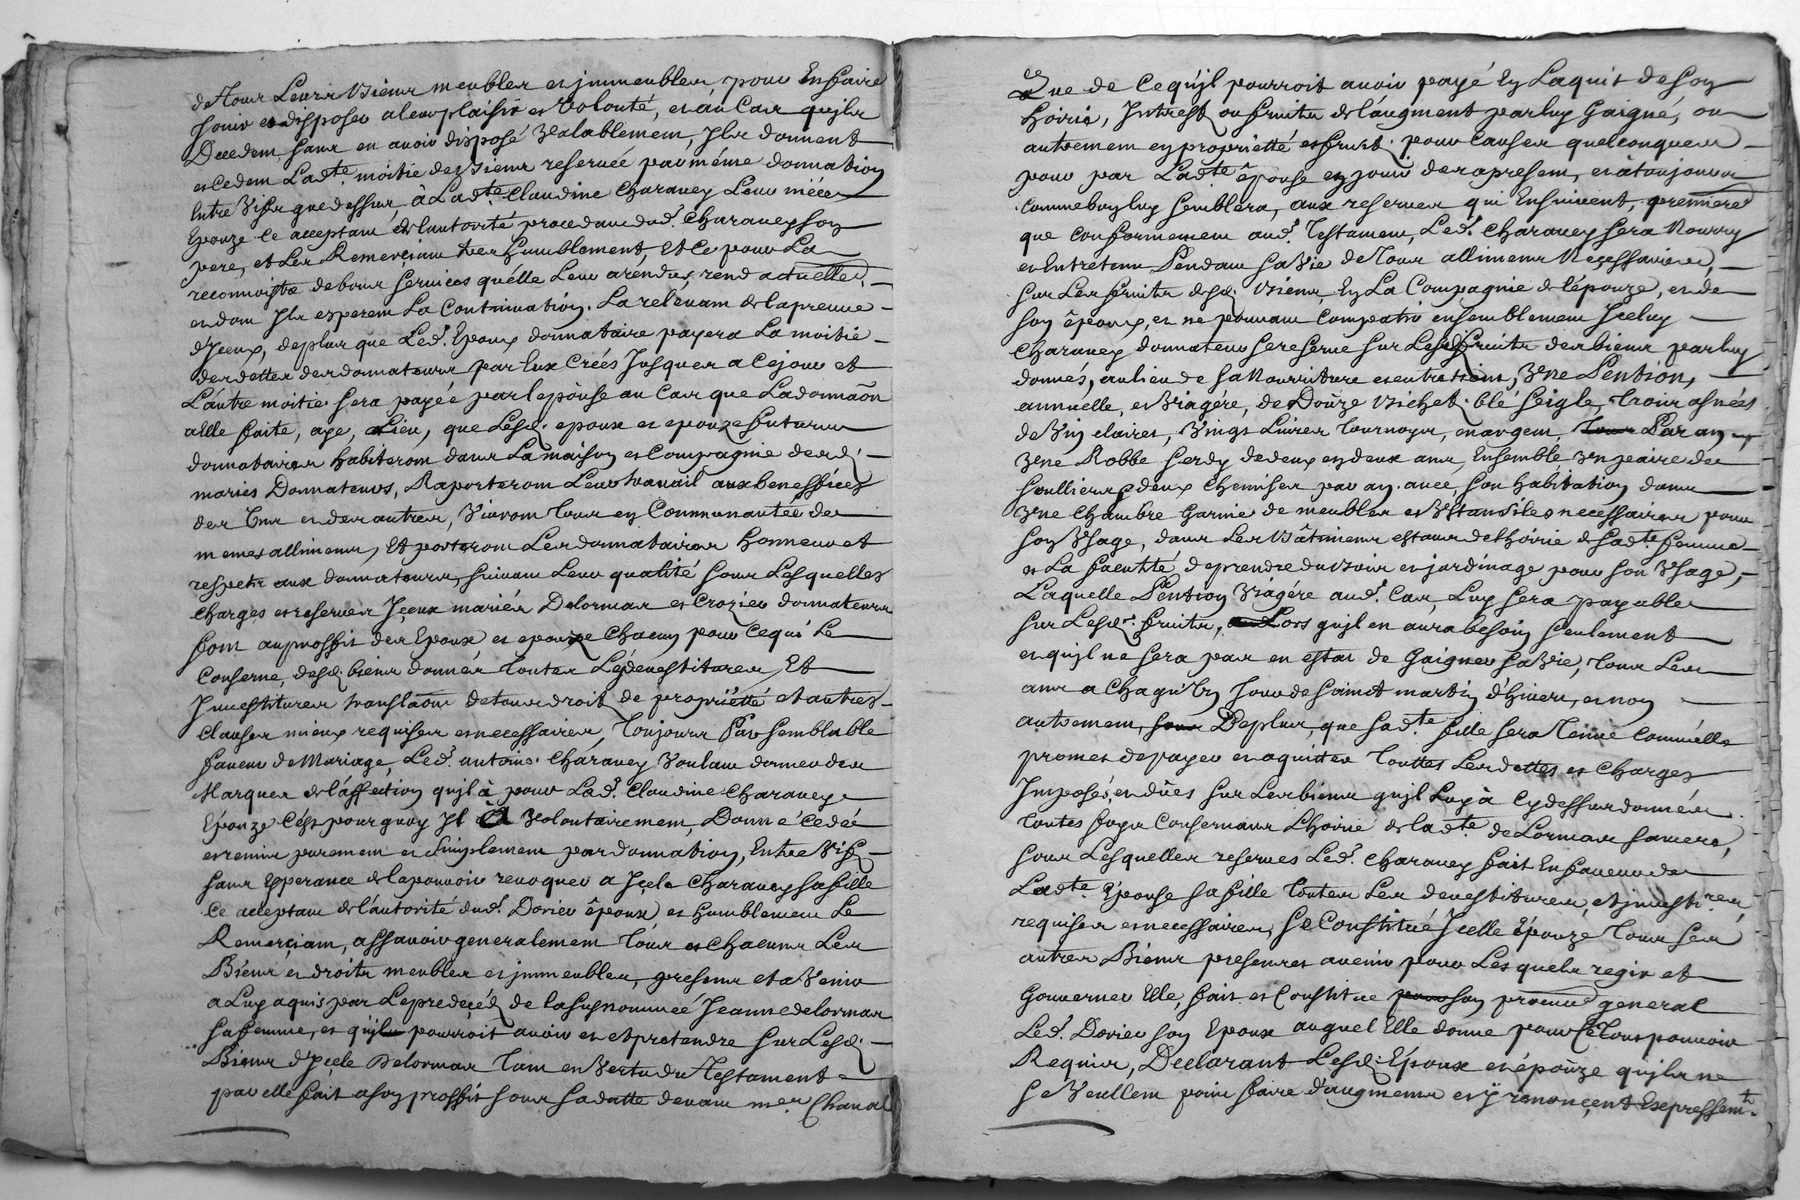 de tous Leurs biens meubles et jmmeubles, pour En faire
Jouir et disposer a leur plaisir et volonté, et au Cas qujls
Decedent sans en avoir disposé valablement, jls donnent
et cedent Ladte. moitié des biens reservée par même donnation
Entre vifs que dessus à Ladte. Claudine Charavey Leur niéce
Epouze Ce acceptant de l'autorité procedant dud. Charavey son
pere, et Les Remerçiant tres humblement, Et Ce pour La
reconnoistce de bons services qu'elle Leur a rendus, rend actuellet.
et dont jls esperent La Continuation. La relevant de la preuve
d'Jceux, de plus que Led. Epoux donnataire payera La moitié
des dettes des donnateurs par Eux Créés Jusques a Ce jour et
L'autre moitié sera payée par lepouse au Cas que La donnaõn
a Elle faite, aye, Lieu, que Lesd. epoux et epouze futurs
donnataires habiteront dans La maison et Compagnie desd.
mariés Donnateurs, Raporteront Leur travail aux benefficés
des Uns et des autres, vivront tous en Communauté de
memes alliments, Et porteront Les donnataires honneur et
respects aux donnateurs, suivant Leur qualité sous Lesquelles
Charges et reserves Jçeux mariés Delormas et Crozier donnateurs
font au proffit des Epoux et epouze Chacun pour Ce qui Le
Conserne, desd. biens donnés toutes Les devestitures, Et
Jnvestitures translaõns de tous droits de propriétté et autres
Clauses mieux requises et necessaires, Toujours Par semblable
faveur de Mariage, Led. antoine Charavey Voulant donner des
Marques de l'affection qujl à pour Lad. Claudine Charavey
Epouze C'est pourquoy Jl A Volontairement, Donné Cedé
et remis purement et simplement par donnation, Entre Vifs
sans Esperance de la pouvoir revoquer a Jçelle Charavey sa fille
Ce acceptant de l'autorité dud. Dorier êpoux et humblement Le
Remerçiant, assavoir generalement tous et chacuns Les
Biens et droits meubles et jmmeubles, presens et a Venir
a Luy aquis par Le predeçés de la susnommeé Jeanne delormas
sa femme, et qujl pourroit avoir et et pretendre sur Lesd.
Biens d'Jçelle Delormas tant en Vertu du Testament
par elle fait a son proffit sous sa datte devant mer. Chanal
Que de Ce qujl pourroit avoir payé En Laquit de son
hoirie, Jntrests ou fruits de l'augment par luy Gaigné, ou
autrement en propriétté et fruit pour Causes quelconques
pour par Ladte êpouse en jouir des apresent, et à toujours
Comme bon luy semblera, aux reserves qui Ensuivent, premieret
que Conformement aud. Testament, Led. Charavey sera Nourry
et Entretenu Pendant sa Vie de tous alliments Necessaires,
sur Les fruits desd. biens, En La Compagnie de l'épouze, et de
son êpoux, et ne pouvant Compatir ensemblement Jceluy
Charavey donnateur se reserve sur Lesd. fruits des biens par luy
donnés, au lieu de sa Nourriture et entretient, Vne Pention,
annuelle, et Viagére, de Douze bichets blé seigle, trois asnées
de Vin claires, Vingt Livres tournoys, en argent, Par an,
Vne Robbe serdy de deux en deux ans, Ensemble Vn paire de
soulliers & deux Chemises par an. avec, son habitation dans
Vne Chambre Garnie de meubles et Vstansiles necessaires pour
son Vsage, dans Les Bâtiments estans de l'hoirie de sadte femme
et La faculté de prendre du bois et jardinage pour son Vsage,
Laquelle Pention Viagére aud. Cas, Luy sera payable
sur Lesds. fruits, Lors qujl en aura besoin seulement
et qujl ne sera pas en estat de Gaigner sa Vie, tous Les
ans a Chaqu'Un Jour de Saint martin d'hiver, et non
autrement, Deplus, que sadte. fille sera Tenüe Comme elle
promet de payer et aquitter Touttes Les dettes et Charges
Jmposés, et dües sur Les biens qujl Luy à Cy dessus donnés
toutes foys Consernant L'hoirie de ladte. de Lormas sa mere,
sous Lesquelles reserves Led. Charavey fait En faveur de
Ladte Epouse sa fille toutes Les devestitures, et jnvestires,
requises et necessaires, se Constitüe Jçelle Epouze tous ses
autres Biens presens et avenir pour Lesquels regir et
Gouverner Elle, fait et Constitue son procur general
Led. Dorier son Epoux auquel Elle donne pour Ce tout pouvoir
Requis, Declarant Lesd. Epoux et épouze qujls ne
se Veullent point faire d'augments et ÿ renonçent Expressemt.